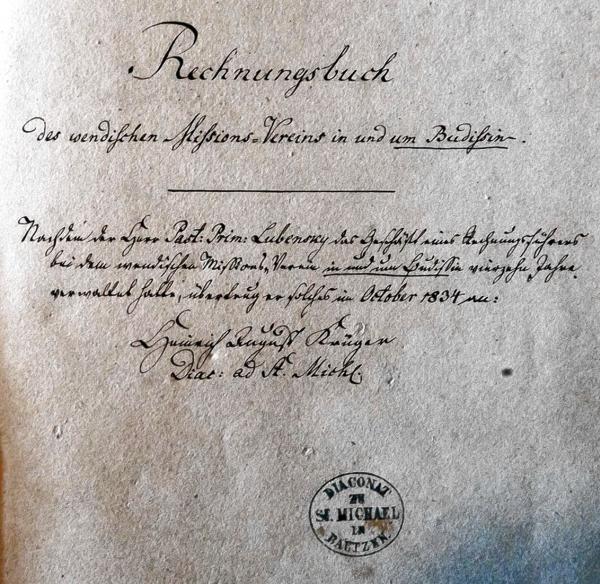 Rechnungsbuch
des wendischen Missions=Vereins in und um Budissin.
Nachdem der Herr Past: Prim: Lubensky das Geschäft eines Rechnungsführers
bei dem wendischen Missions-Verein in und um Budissin vierzehn Jahre
verwaltet hatte, übertrug er solches im October 1834 an:
Heinrich August Krüger
Diac: ad St. Mich.
DIACONAT
ZU
St. MICHAEL
IN
BAUTZEN.